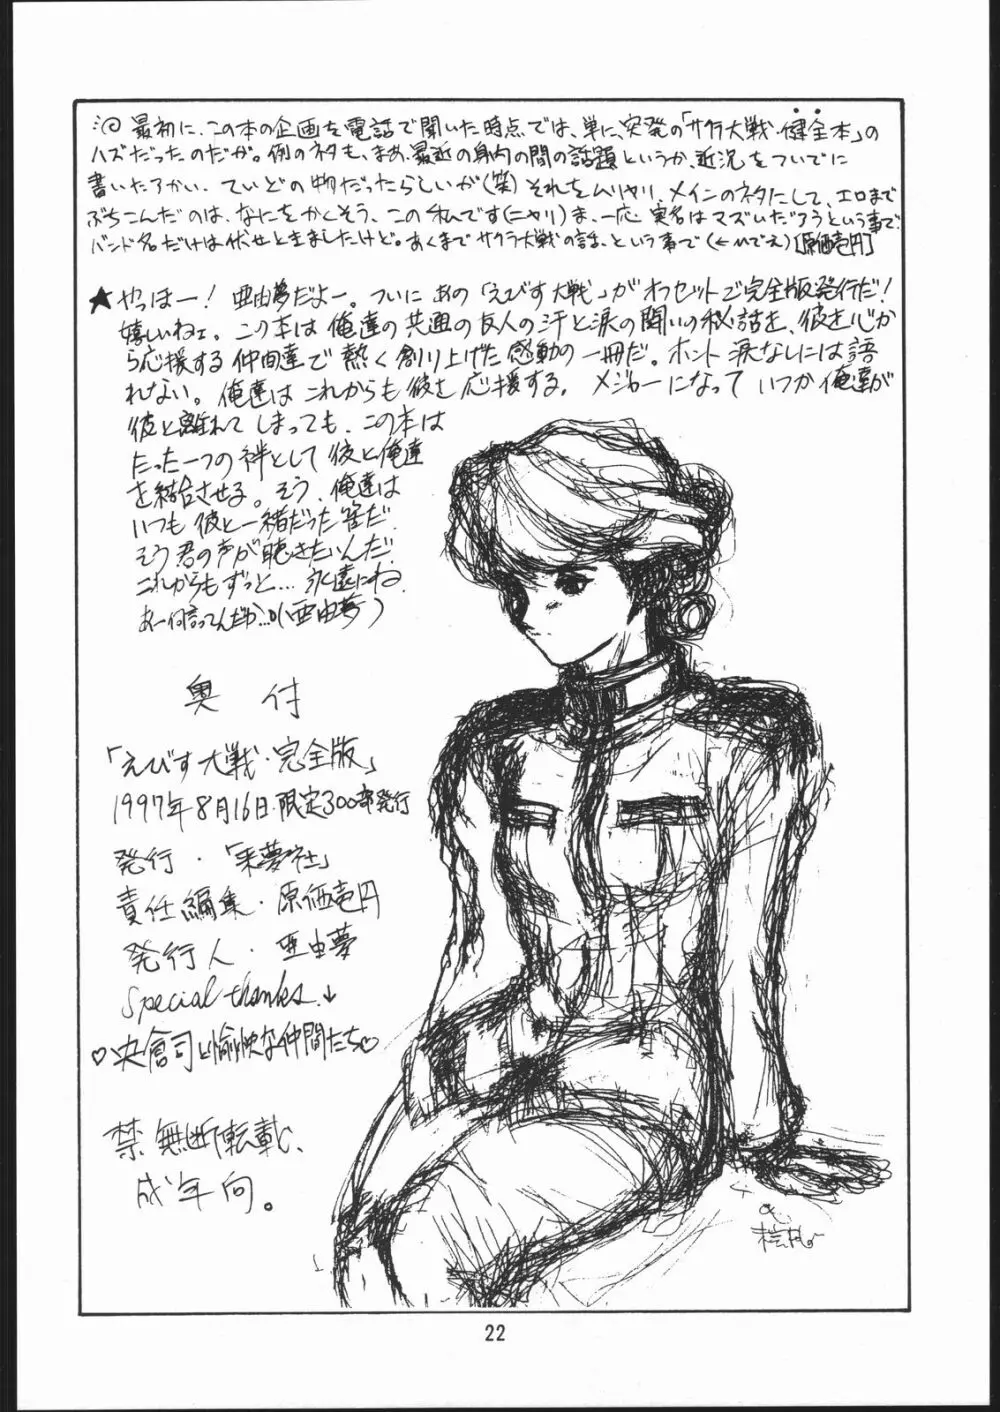 最初に、この本の企画を電話で聞いた時点では、単に、突発の「サクラ大戦・健全本」の
ハズだったのだが。例のネタも、まぁ、最近の身内の間の話題というか、近況をついでに
書いたろかい、ていどの物だったらしいが(笑)それをムリヤリ、メインのネタにして、エロまで
ぶちこんだのは、なにをかくそう、この私です(ニヤリ)ま、一応実名はマズいだろうという事で、
バンド名だけは伏せときましたけど。あくまでサクラ大戦の話、という事で(←ひでえ)[原価壱円]
★やっほー!亜由夢だよー。ついにあの「えびす大戦」がオフセットで完全版発行だ!
嬉しいねェ。この本は俺達の共通の友人の汗と涙の闘いの秘話を、彼を心か
ら応援する仲間達で熱く創り上げた感動の一冊だ。ホント涙なしには語
れない。俺達はこれからも彼を応援する。メジャーになっていつか俺達が
彼と離れてしまっても、この本は
たった一つの絆として彼と俺達
を結合させる。そう、俺達は
いつも彼と一緒だった筈だ。
そう君の声が聴きたいんだ。
これからもずっと…永遠にね。
あー何言ってんだか…。(亜由夢)
奥付
「えびす大戦・完全版」
1997年8月16日・限定300部発行
発行・「来夢社」
責任編集・原価壱円
発行人・亜由夢
Special thanks.↓
♡央倉司と愉快な仲間たち♡
禁無断転載、
成年向。
22